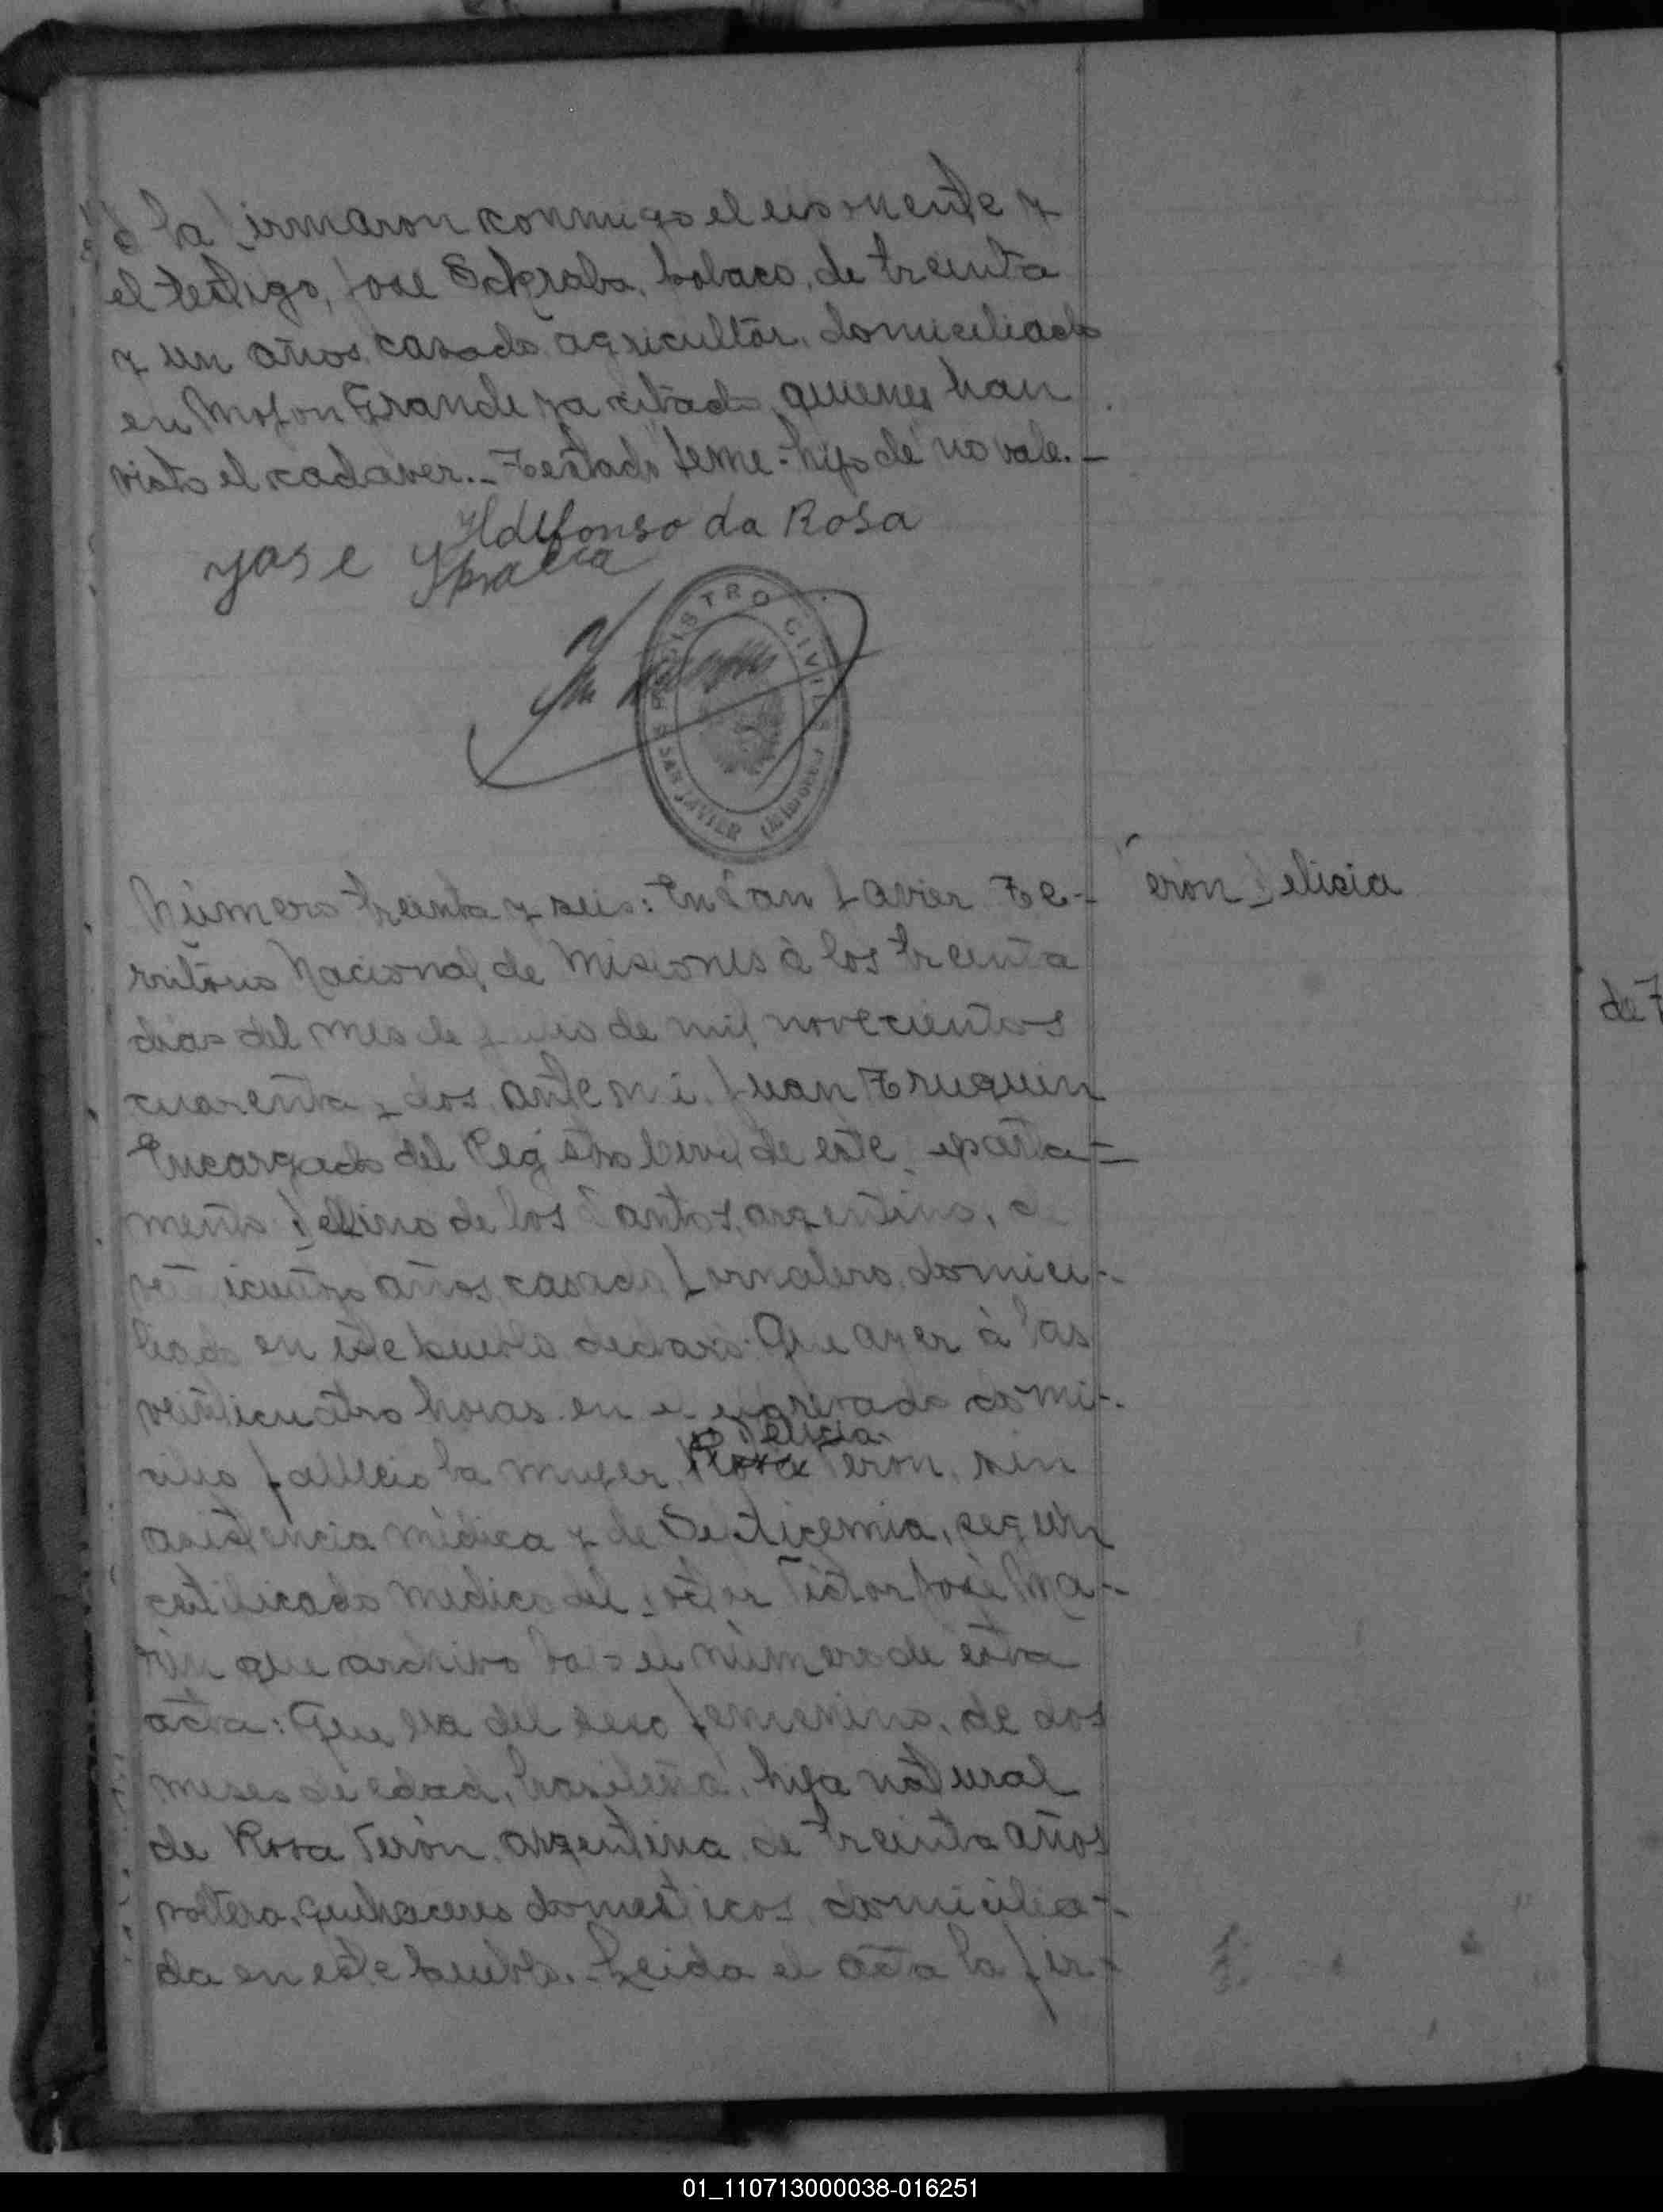 la firmaron conmigo el exponente y
el testigo, Jose Schraba, polaco, de treinta
y un años, casado, agricultor, domiciliado
en Mojon Grande ya citado, quienes han
visto el cadaver.- Testado "teme - hijo de" no vale.-
Ildefonso da Rosa
yase
REGISTRO CIVIL
SAN JAVIER (MISIONES)
Número treinta y seis: En San Javier Te-
Terón Felicia
rritorio Nacional de Misiones à los treinta
dias del mes de de mil novecientos
cuarenta y dos, ante mi, Juan Truquin
Encargado del Registro Civil de este Departa-
mento de los Santos, argentino, de
veinticuatro años, casado, jornalero, domici-
liado en este pueblo, declaró: Que ayer à las
veinticuatro horas en el expresado domi-
Felicia
cilio falleció la mujer Rosa Terón, sin
asistencia médica y de Septicemia, segun
certificado medico del doctor Victor José Ma-
rin que archivo bajo el número de esta
acta: Que era del sexo femenino, de dos
meses de edad, brasileña, hija natural
de Rosa Terón, argentina, de treinta años
soltera, quehaceres domesticos, domicilia-
da en este pueblo.- Leida el acta la fir-
de T
01_110713000038-016251